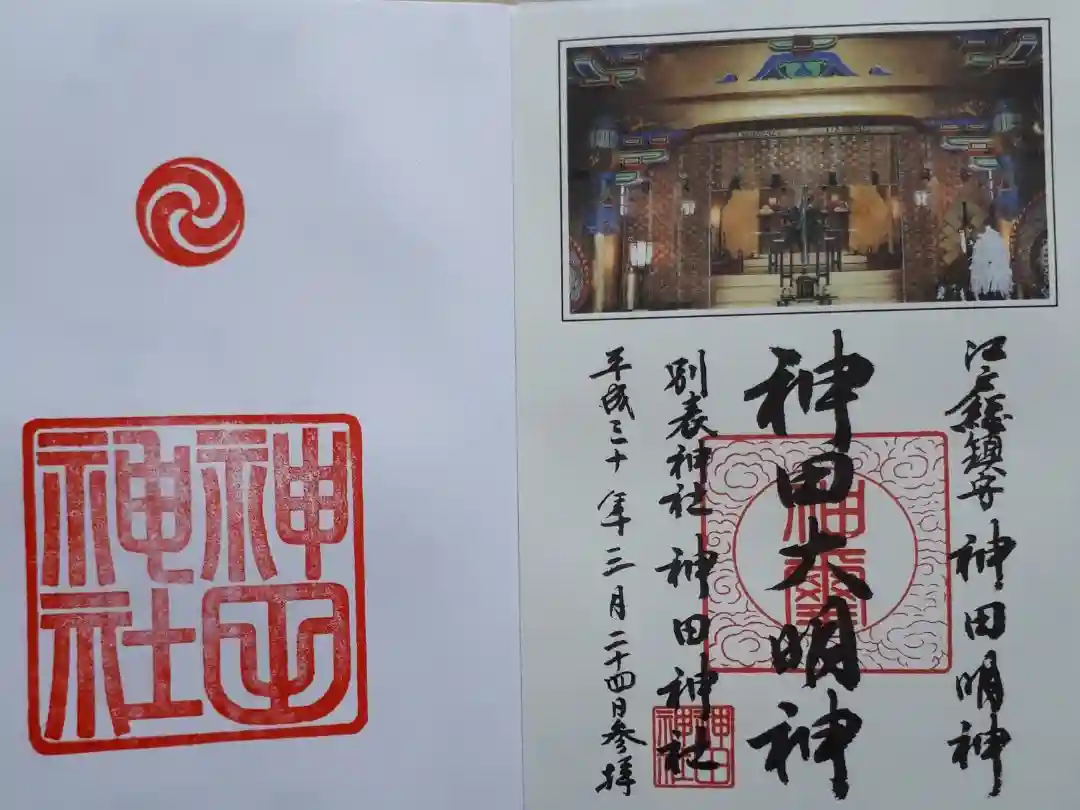 江戸総鎮守 神田明神
神田大明神
神霊
別表神社 神田神社
神田神社
平成三十年三月二十四日参拝
神田神社